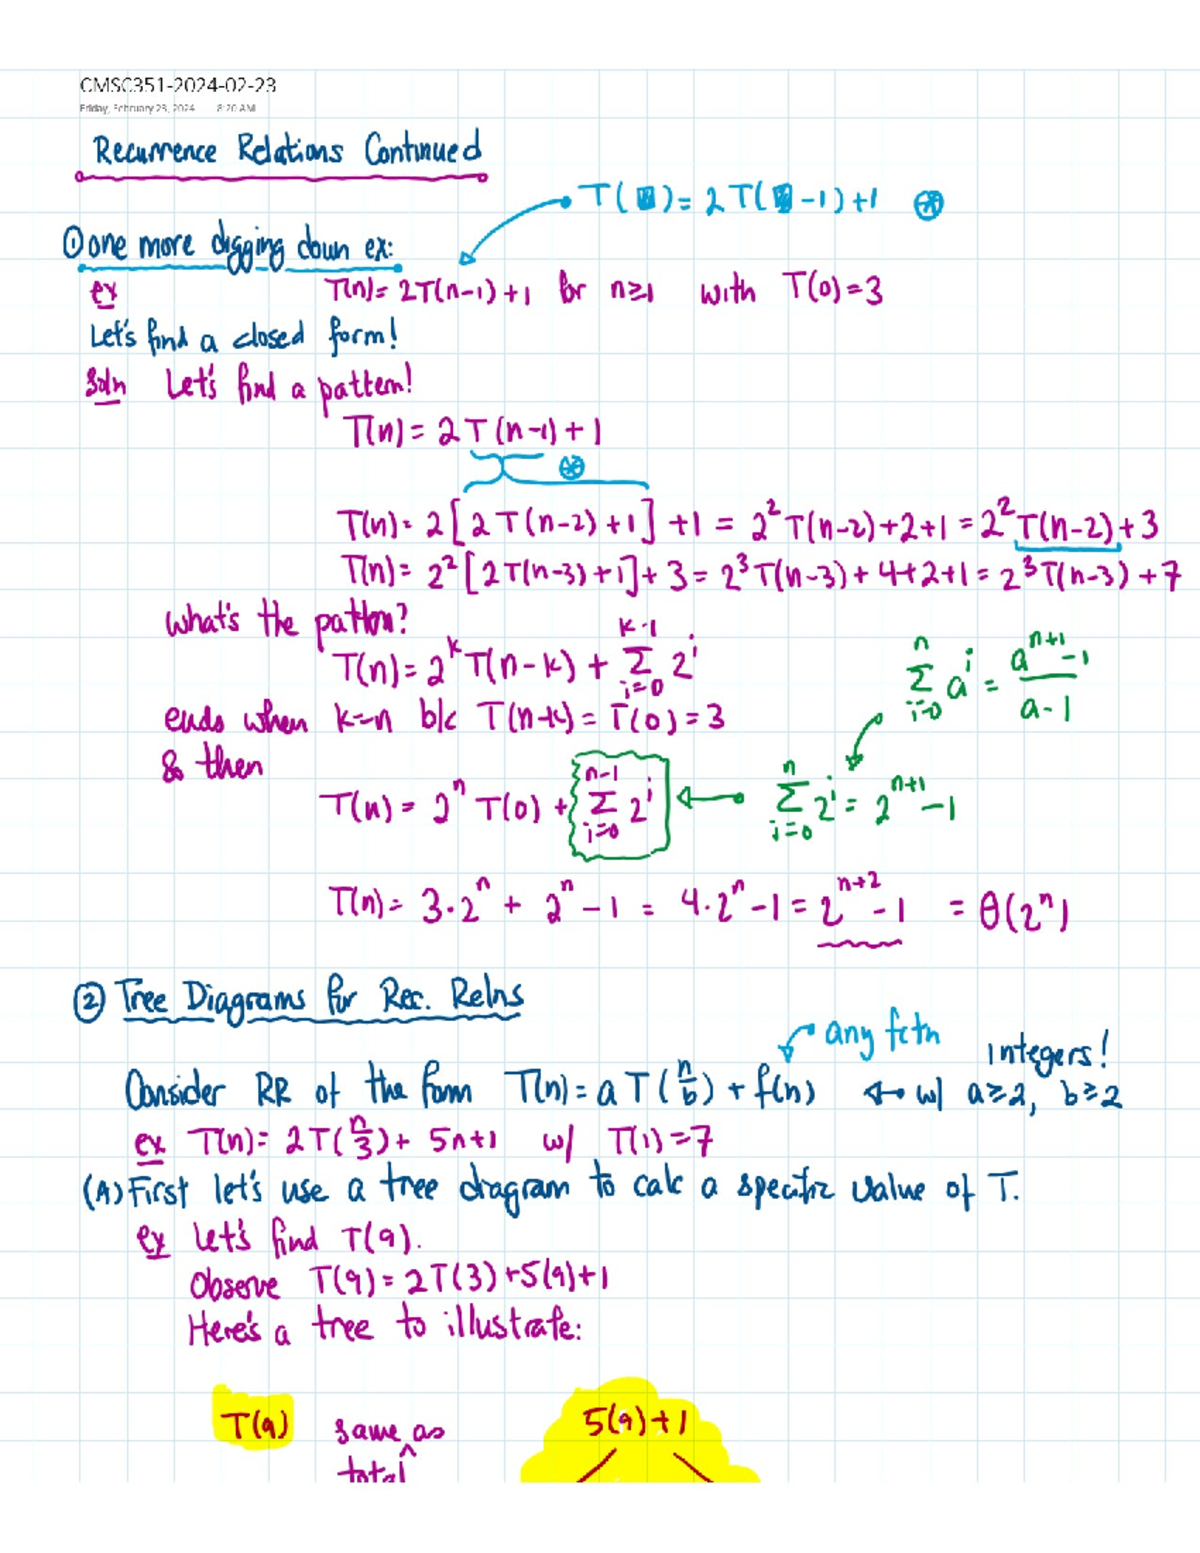 CMSC351-2024-02-23
Friday, February 23, 2024 8:20 AM
Recurrence Relations Continued
T(■)=2T(■-1)+1 ⊛
① one more digging down ex:
ex T(n)=2T(n-1)+1 for n≥1 with T(0)=3
Let's find a closed form!
Soln Let's find a pattern!
T(n)=2T(n-1)+1
⊛
T(n)=2[2T(n-2)+1]+1=2²T(n-2)+2+1=2²T(n-2)+3
T(n)=2²[2T(n-3)+1]+3=2³T(n-3)+4+2+1=2³T(n-3)+7
what's the pattern?
T(n)=2^k T(n-k)+∑_{i=0}^{k-1} 2^i
∑_{i=0}^{n} a^i = (a^{n+1}-1)/(a-1)
ends when k=n b/c T(n-k)=T(0)=3
& then
T(n)=2^n T(0)+∑_{i=0}^{n-1} 2^i
∑_{i=0}^{n} 2^i=2^{n+1}-1
T(n)=3·2^n+2^n-1=4·2^n-1=2^{n+2}-1 =θ(2^n)
② Tree Diagrams for Rec. Relns
any fctn
integers!
Consider RR of the form T(n)=aT(n/b)+f(n) w/ a≥2, b≥2
ex T(n)=2T(n/3)+5n+1 w/ T(1)=7
(A) First let's use a tree diagram to calc a specific value of T.
ex Let's find T(9).
Observe T(9)=2T(3)+5(9)+1
Here's a tree to illustrate:
T(9) same as 5(9)+1
^
total